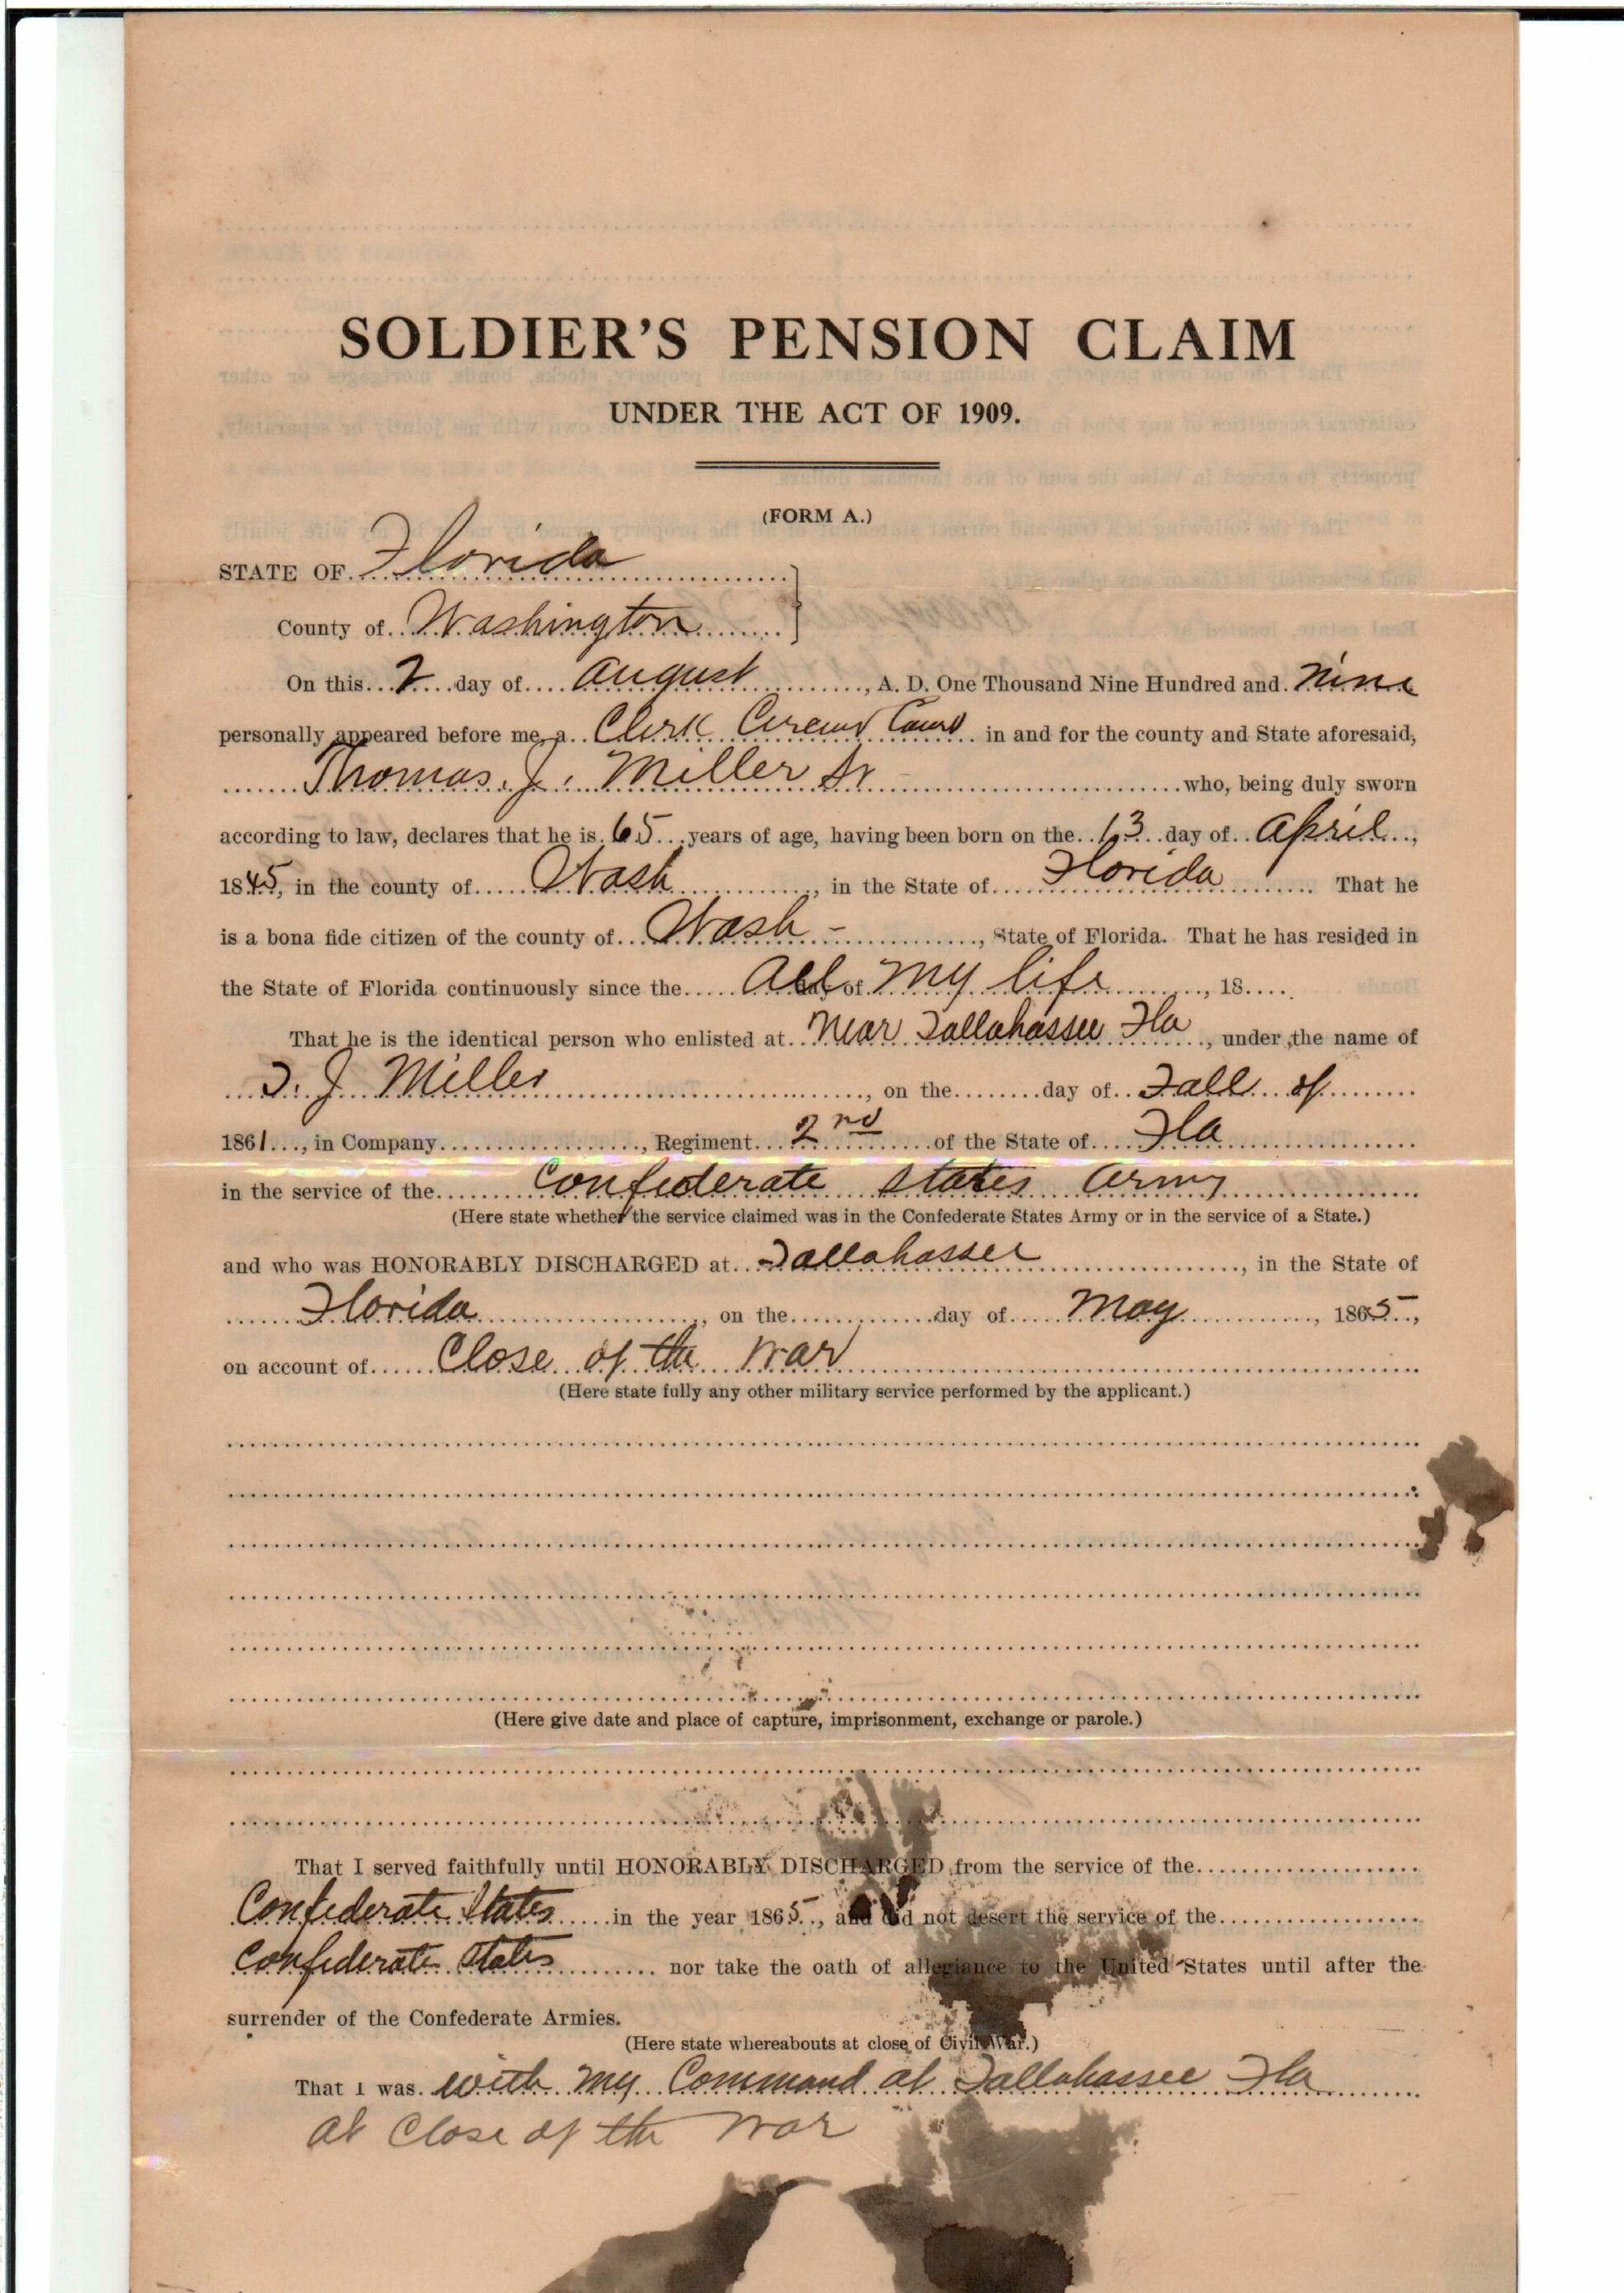 SOLDIER'S PENSION CLAIM
UNDER THE ACT OF 1909.
(FORM A.)
STATE OF Florida
County of Washington
On this 2 day of August, A. D. One Thousand Nine Hundred and Nine
personally appeared before me, a Clerk Circuit Court in and for the county and State aforesaid,
Thomas J. Miller Sr who, being duly sworn
according to law, declares that he is 65 years of age, having been born on the 13 day of April,
1845, in the county of Wash, in the State of Florida That he
is a bona fide citizen of the county of Wash -, State of Florida. That he has resided in
the State of Florida continuously since the All day of my life, 18
That he is the identical person who enlisted at Near Tallahassee Fla, under the name of
T. J Miller, on the day of Fall of
1861, in Company, Regiment 2nd of the State of Fla
in the service of the Confederate States Army
(Here state whether the service claimed was in the Confederate States Army or in the service of a State.)
and who was HONORABLY DISCHARGED at Tallahassee, in the State of
Florida, on the day of May, 1865,
on account of Close of the war
(Here state fully any other military service performed by the applicant.)
(Here give date and place of capture, imprisonment, exchange or parole.)
That I served faithfully until HONORABLY DISCHARGED from the service of the
Confederate States in the year 1865, and did not desert the service of the
Confederate States nor take the oath of allegiance to the United States until after the
surrender of the Confederate Armies.
(Here state whereabouts at close of Civil War.)
That I was with my Command at Tallahassee Fla
at Close of the war